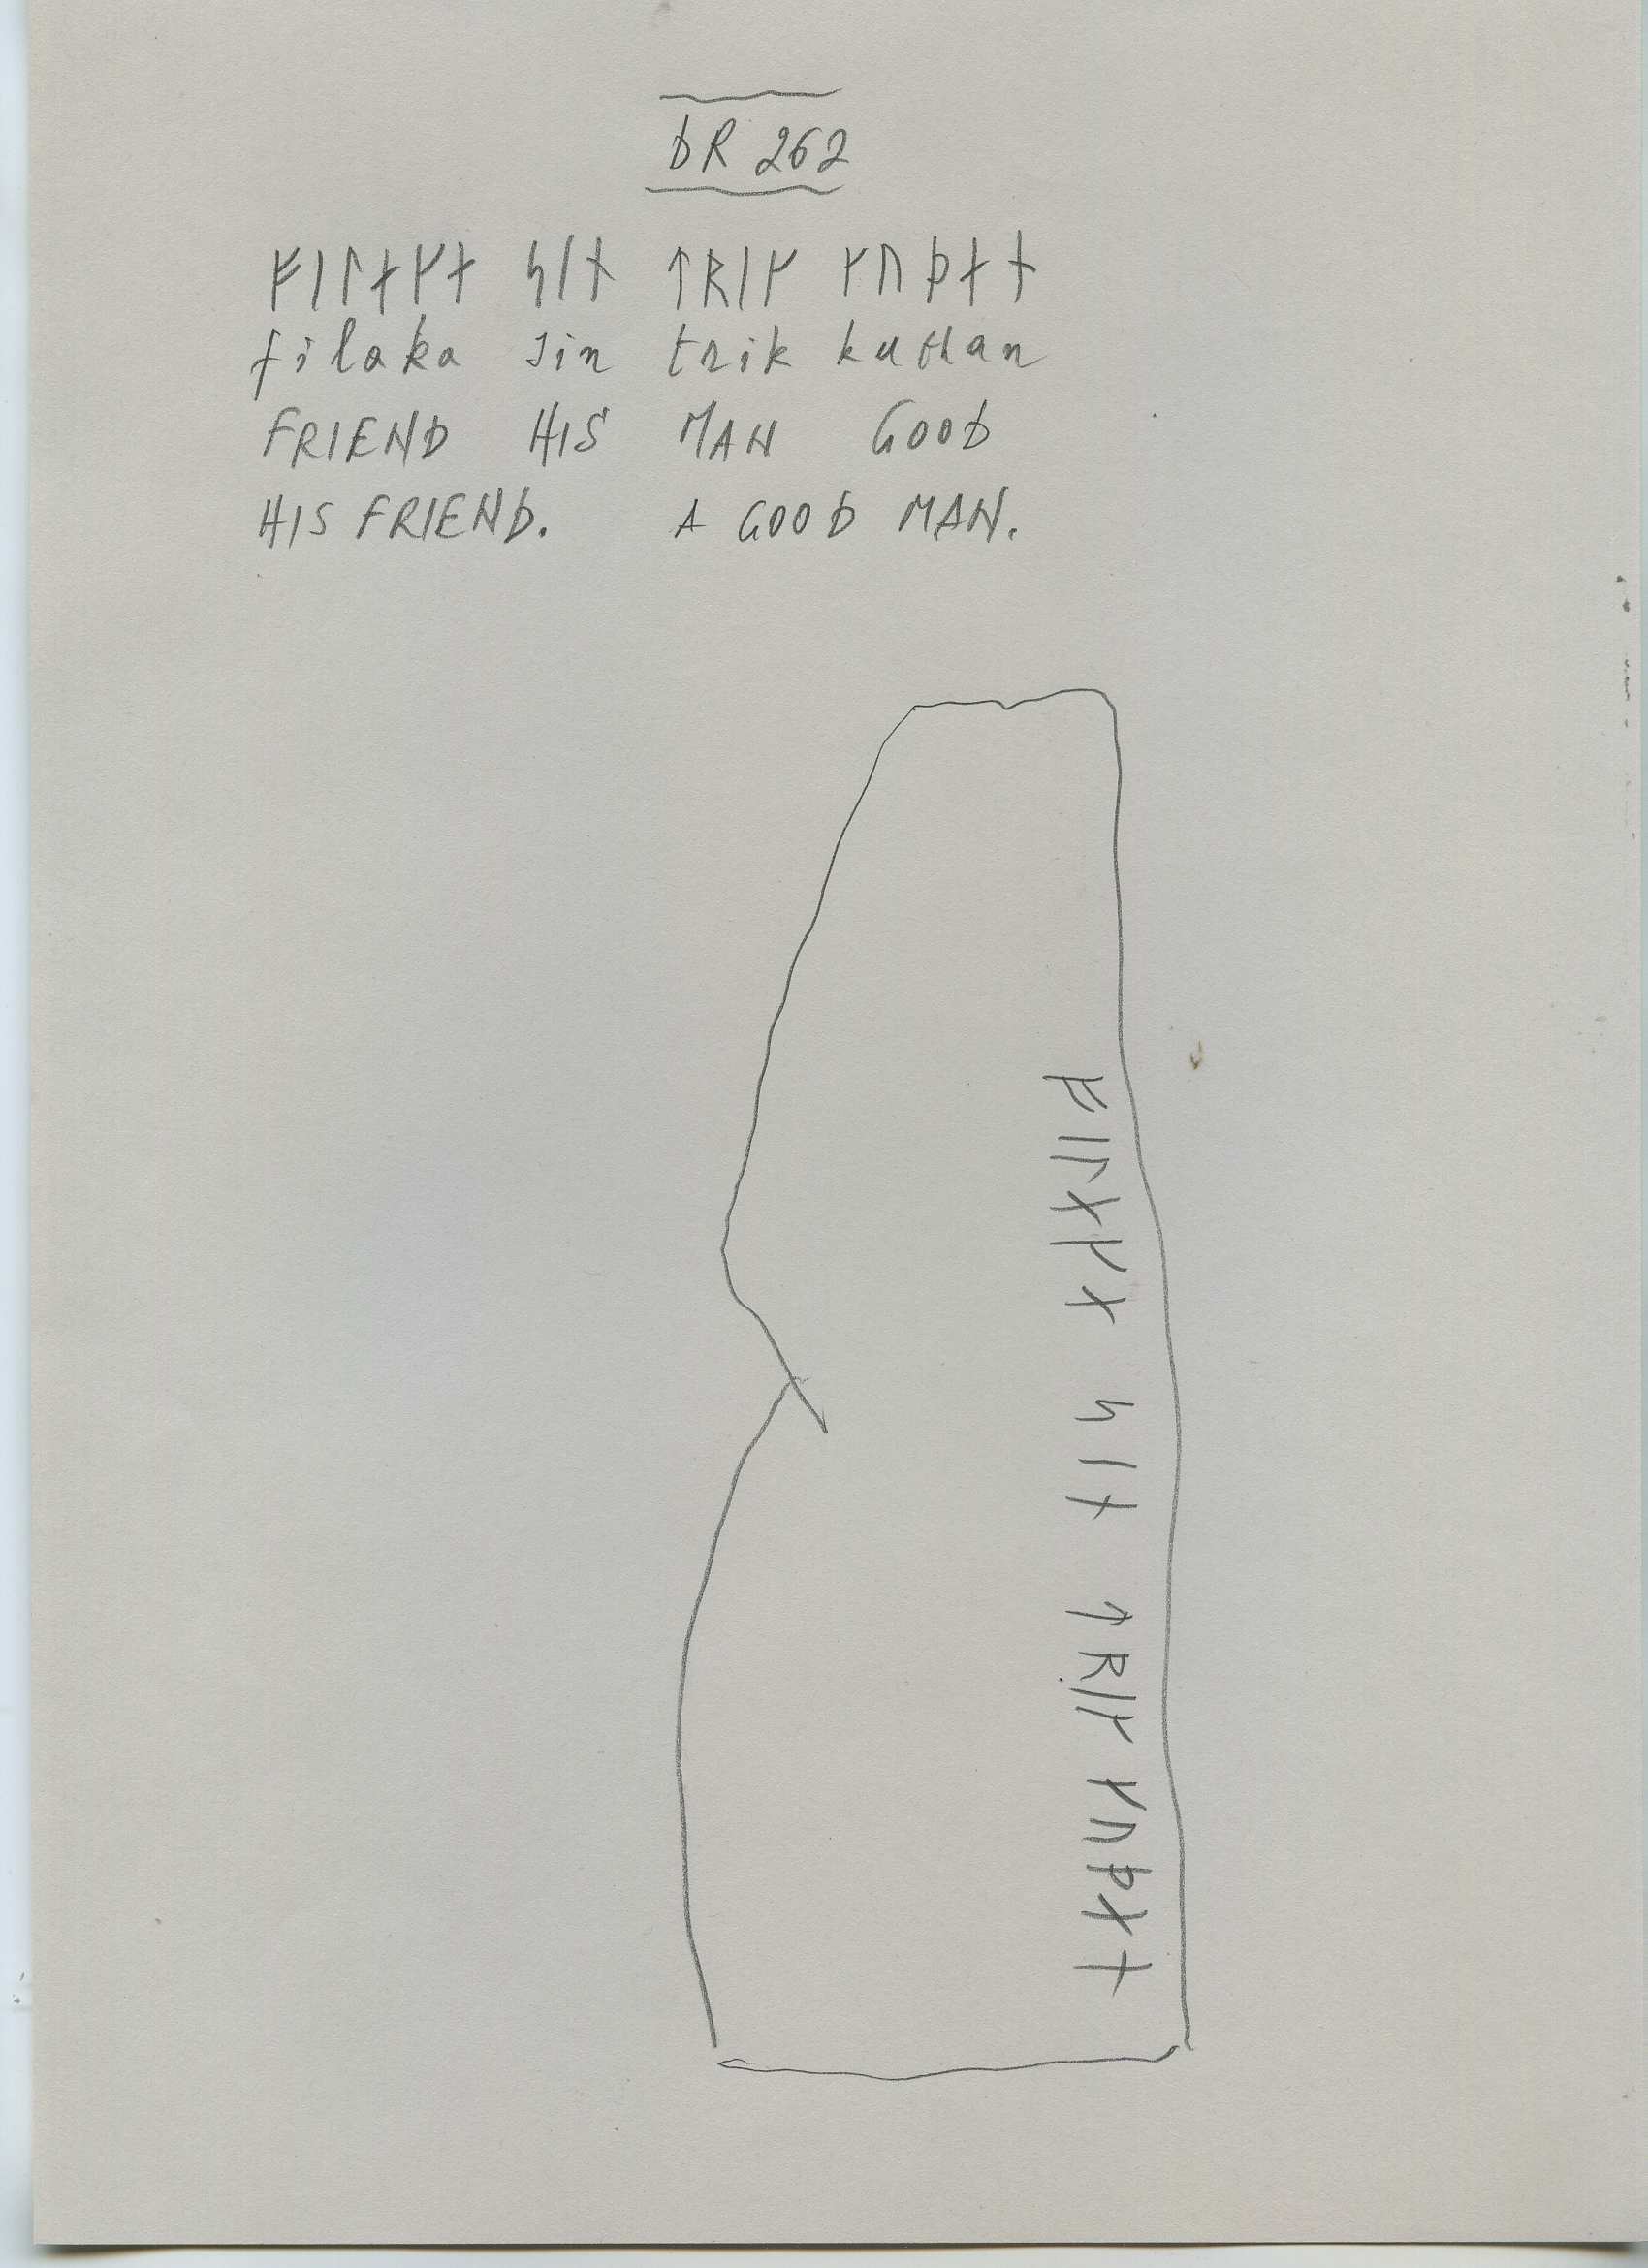 DR 262
ᚠᛁᛚᛅᚴᛅ ᛋᛁᚾ ᛏᚱᛁᚴ ᚴᚢᚦᛅᚾ
filaka sin trik kuthan
FRIEND HIS MAN GOOD
HIS FRIEND. A GOOD MAN.
ᚠᛁᛚᛅᚴᛅ ᛋᛁᚾ ᛏᚱᛁᚴ ᚴᚢᚦᛅᚾ